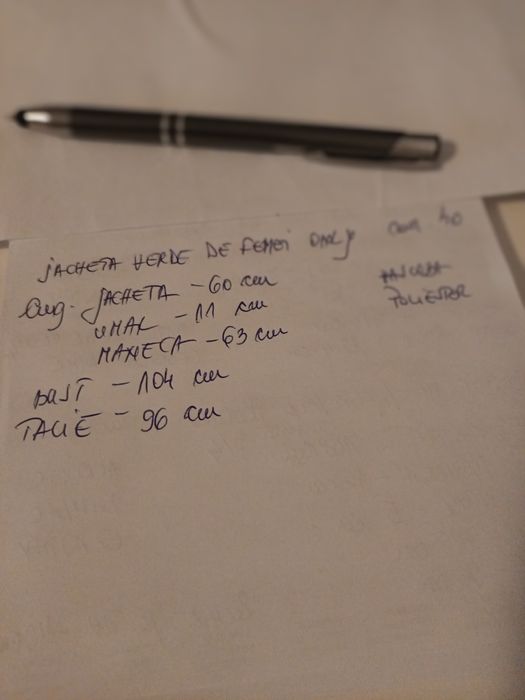 JACHETA VERDE DE FEMEI ONLY
40
Lung. JACHETA - 60 cm
UMAR - 11 cm
MANECA - 63 cm
POLIESTER
BUST - 104 cm
TALIE - 96 cm